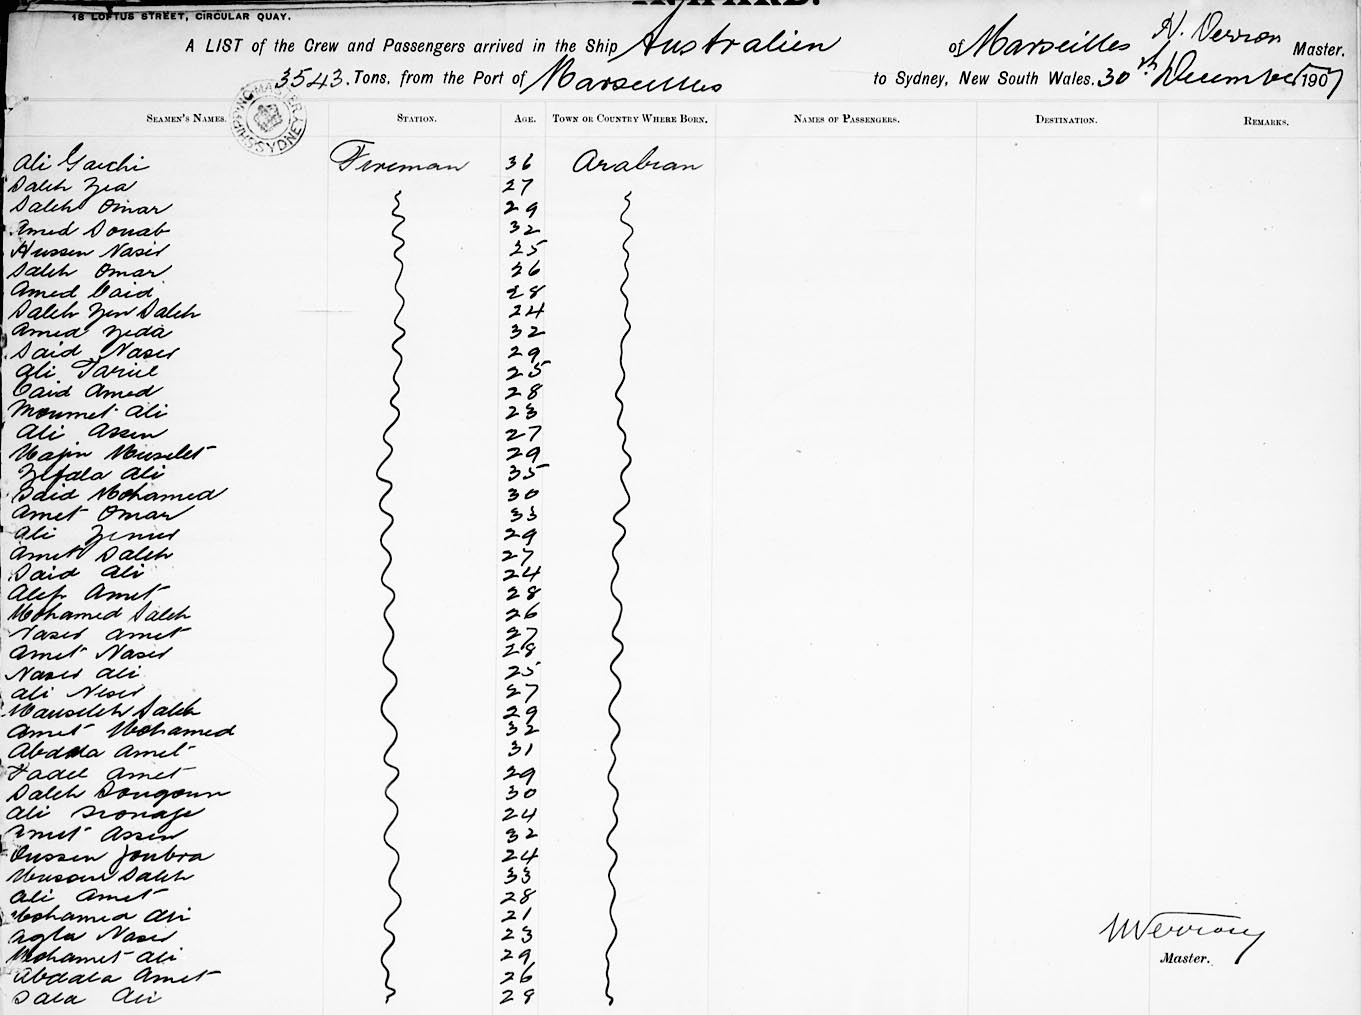 18 LOFTUS STREET, CIRCULAR QUAY.
INWARD.
A LIST of the Crew and Passengers arrived in the Ship Australien of Marseilles H. Verron Master.
3543. Tons, from the Port of Marseilles to Sydney, New South Wales, 30th December 1907
SHIPPING MASTER SYDNEY
SEAMEN'S NAMES. STATION. AGE. TOWN OR COUNTRY WHERE BORN. NAMES OF PASSENGERS. DESTINATION. REMARKS.
Ali Gaichi Fireman 36 Arabian
Saleh Zea 27
Saleh Omar 29
Amed Souab 32
Hussen Nasir 25
Saleh Omar 26
Amed Caid 28
Saleh Zen Saleh 24
Amed Zeda 32
Said Naser 29
Ali Tariel 25
Caid Amed 28
Moumet Ali 23
Ali Assen 27
Najin Muselet 29
Zefala Ali 35
Said Mohamed 30
Amet Omar 33
Ali 29
Amet Saleh 27
Said Ali 24
Alep Amet 28
Mohamed Saleh 26
Naser Amet 27
Amet Naser 28
Naser Ali 25
Ali Neser 27
Mauseleh Saleh 29
Amet Mohamed 32
Abdala Amet 31
Fadel Amet 29
Saleh Sougoun 30
Ali 24
Amet Assen 32
Oussen Joubra 24
Saleh 33
Ali Amet 28
Mohamed Ali 21
Agla Naser 23
Mohamet Ali 29
Abdala Amet 26
Sala Ali 28
HVerron
Master.